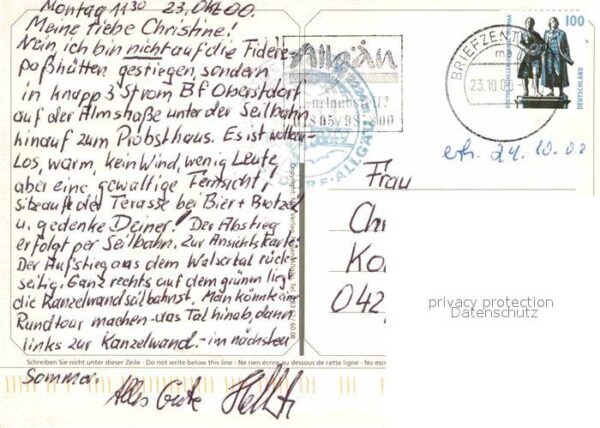 Montag 11:30 23. Okt. 00.
Meine liebe Christine!
Nein, ich bin nicht auf die Fidere-
poßhütten gestiegen, sondern
in knapp 3 St vom BF Oberstdorf
auf der Almstraße unter der Seilbahn
hinauf zum Probsthaus. Es ist wolken-
Los, warm, kein Wind, wenig Leute,
aber eine gewaltige Fernsicht,
sitze auf der Terasse bei Bier + Brotzeit
u. gedenke Deiner! Der Abstieg
erfolgt per Seilbahn. Zur Ansichtskarte:
Der Aufstieg aus dem Walsertal rück-
seitig. Ganz rechts auf dem grünen liegt
die Kanzelwandseilbahnst. Man könnte eine
Rundtour machen - das Tal hinab, dann
links zur Kanzelwand. - im nächsten
Schreiben Sie nicht unter dieser Zeile - Do not write below this line - Ne rien écrire au dessous de cette ligne - No escr
Sommer.
Alles Gute
Allgäu
BRIEFZENT
23.10.00
100
DEUTSCHLAND
erh. 24.10.00
Frau
Ch
Ko
042
privacy protection
Datenschutz